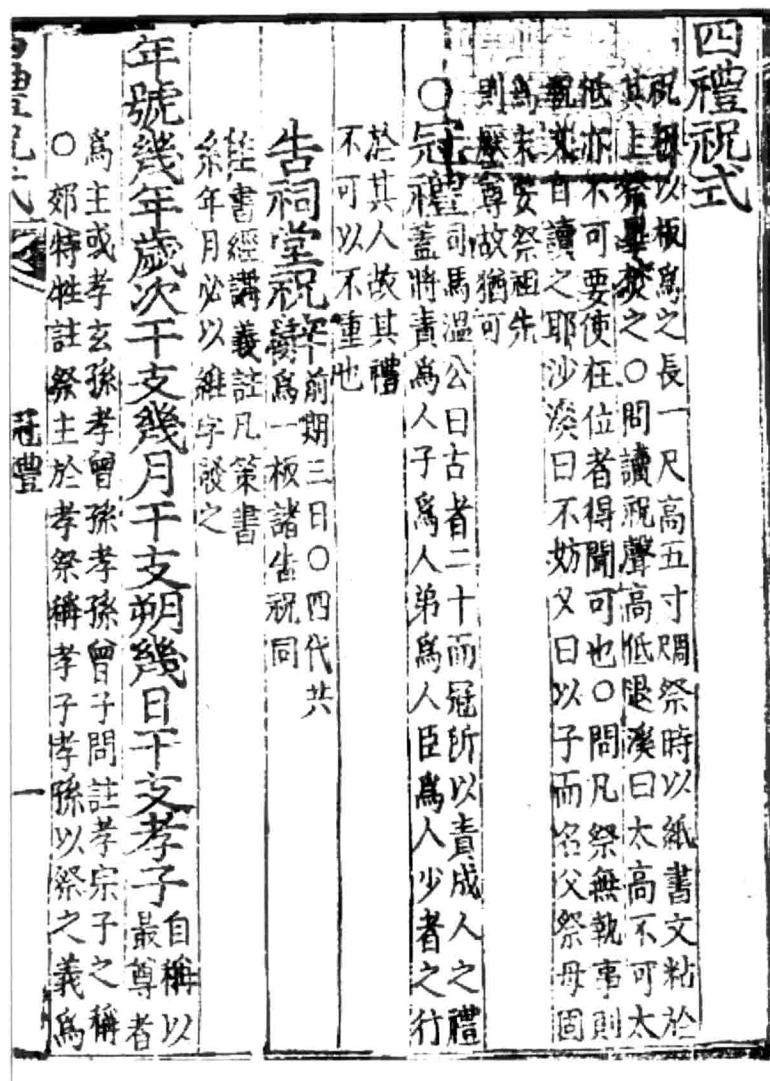 四禮祝式
祝板以板爲之長一尺高五寸周祭時以紙書文粘於
其上祭畢焚之○問讀祝聲高低退溪曰太高不可太
低亦不可要使在位者得聞可也○問凡祭無執事則
祝文自讀之耶沙溪曰不妨又曰以子而名父祭母固
爲未安祭祖先
則壓尊故猶可
○冠禮司馬溫公曰古者二十而冠所以責成人之禮
蓋將責爲人子爲人弟爲人臣爲人少者之行
於其人故其禮
不可以不重也
告祠堂祝辭前期三日○四代共
爲一板諸告祝同
註書經講義註凡策書
糸年月必以維字發之
年號幾年歲次干支幾月干支朔幾日干支孝子自稱以
最尊者
爲主或孝玄孫孝曾孫孝孫曾子問註孝宗子之稱
○郊特牲註祭主於孝祭稱孝子孝孫以祭之義爲
四禮祝式
冠豊
一